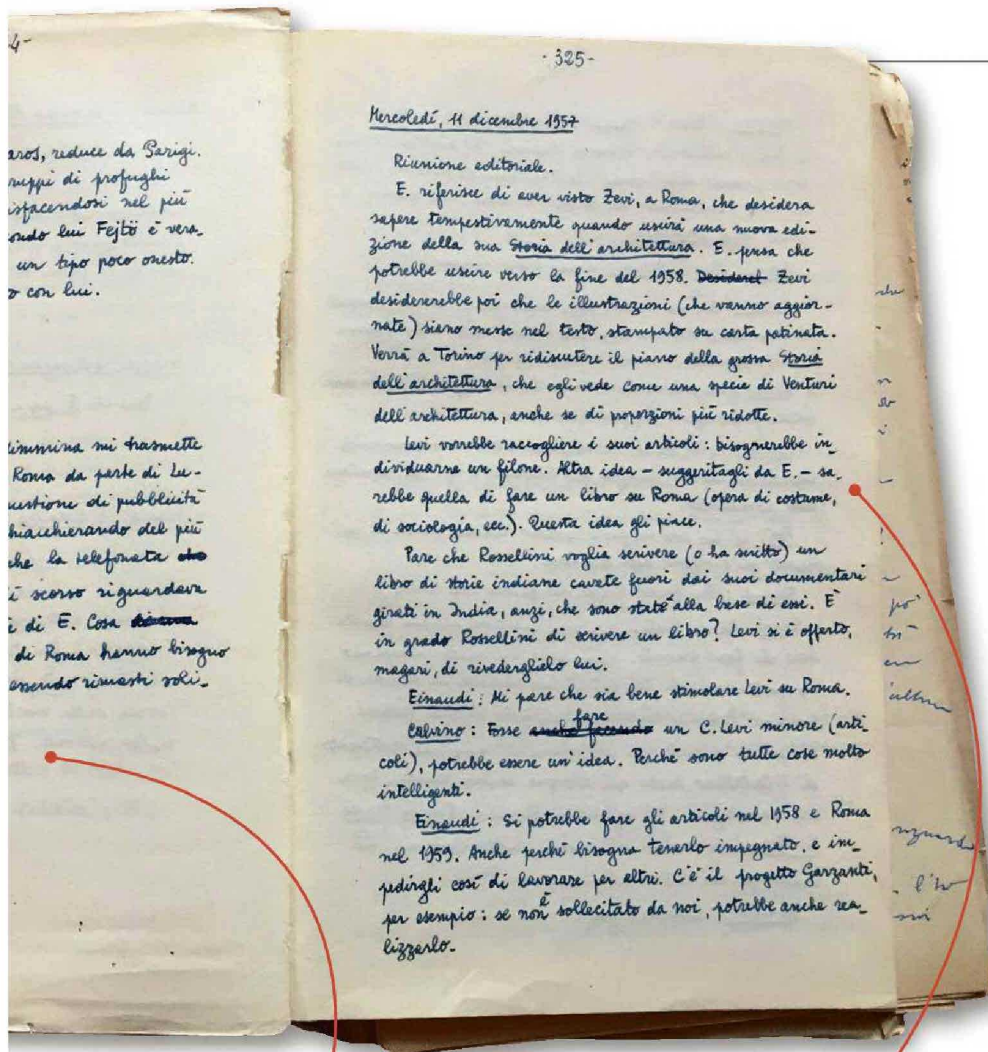 4-
aros, reduce da Parigi.
ruppi di profughi
isfacendosi nel più
condo lui Fejtö è vera_
un tipo poco onesto.
o con lui.
mi trasmette
Roma da parte di Lu-
uestione di pubblicità
hiacchierando del più
che la telefonata che
ì scorso riguardava
i di E. Cosa
di Roma hanno bisogno
essendo rimasti soli_
- 325 -
Mercoledì, 11 dicembre 1957
Riunione editoriale.
E. riferisce di aver visto Zevi, a Roma, che desidera
sapere tempestivamente quando uscirà una nuova edi-
zione della sua Storia dell'architettura. E. pensa che
potrebbe uscire verso la fine del 1958. Desideref Zevi
desidererebbe poi che le illustrazioni (che vanno aggior-
nate) siano messe nel testo, stampato su carta patinata.
Verrà a Torino per ridiscutere il piano della grossa Storia
dell'architettura, che egli vede come una specie di Venturi
dell'architettura, anche se di proporzioni più ridotte.
Levi vorrebbe raccogliere i suoi articoli: bisognerebbe in_
dividuarne un filone. Altra idea - suggeritagli da E. - sa_
rebbe quella di fare un libro su Roma (opera di costume,
di sociologia, ecc.). Questa idea gli piace.
Pare che Rossellini voglia scrivere (o ha scritto) un
libro di storie indiane cavate fuori dai suoi documentari
girati in India, anzi, che sono state alla base di essi. È
in grado Rossellini di scrivere un libro? Levi si è offerto,
magari, di rivederglielo lui.
Einaudi: Mi pare che sia bene stimolare Levi su Roma.
Calvino: Forse anche facendo fare un C. Levi minore (arti-
coli), potrebbe essere un'idea. Perché sono tutte cose molto
intelligenti.
Einaudi: Si potrebbe fare gli articoli nel 1958 e Roma
nel 1959. Anche perché bisogna tenerlo impegnato, e im_
pedirgli così di lavorare per altri. C'è il progetto Garzanti,
per esempio: se non è sollecitato da noi, potrebbe anche rea_
lizzarlo.
po'